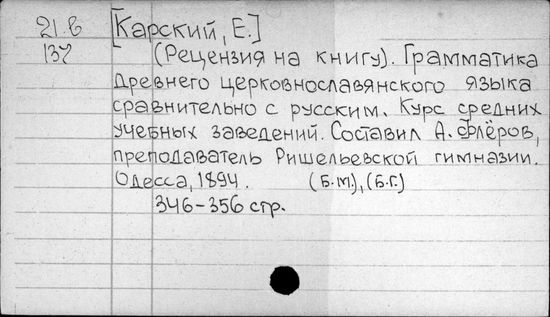 21.в [Карский, Е.]
137 (Рецензия на книгу). Грамматика
древнего церковнославянского языка
сравнительно с русским. Курс средних
учебных заведений. Составил А. Флёров,
преподаватель Ришельевской гимназии.
Одесса, 1894. (Б.М.), (Б.Г.)
346-356 стр.